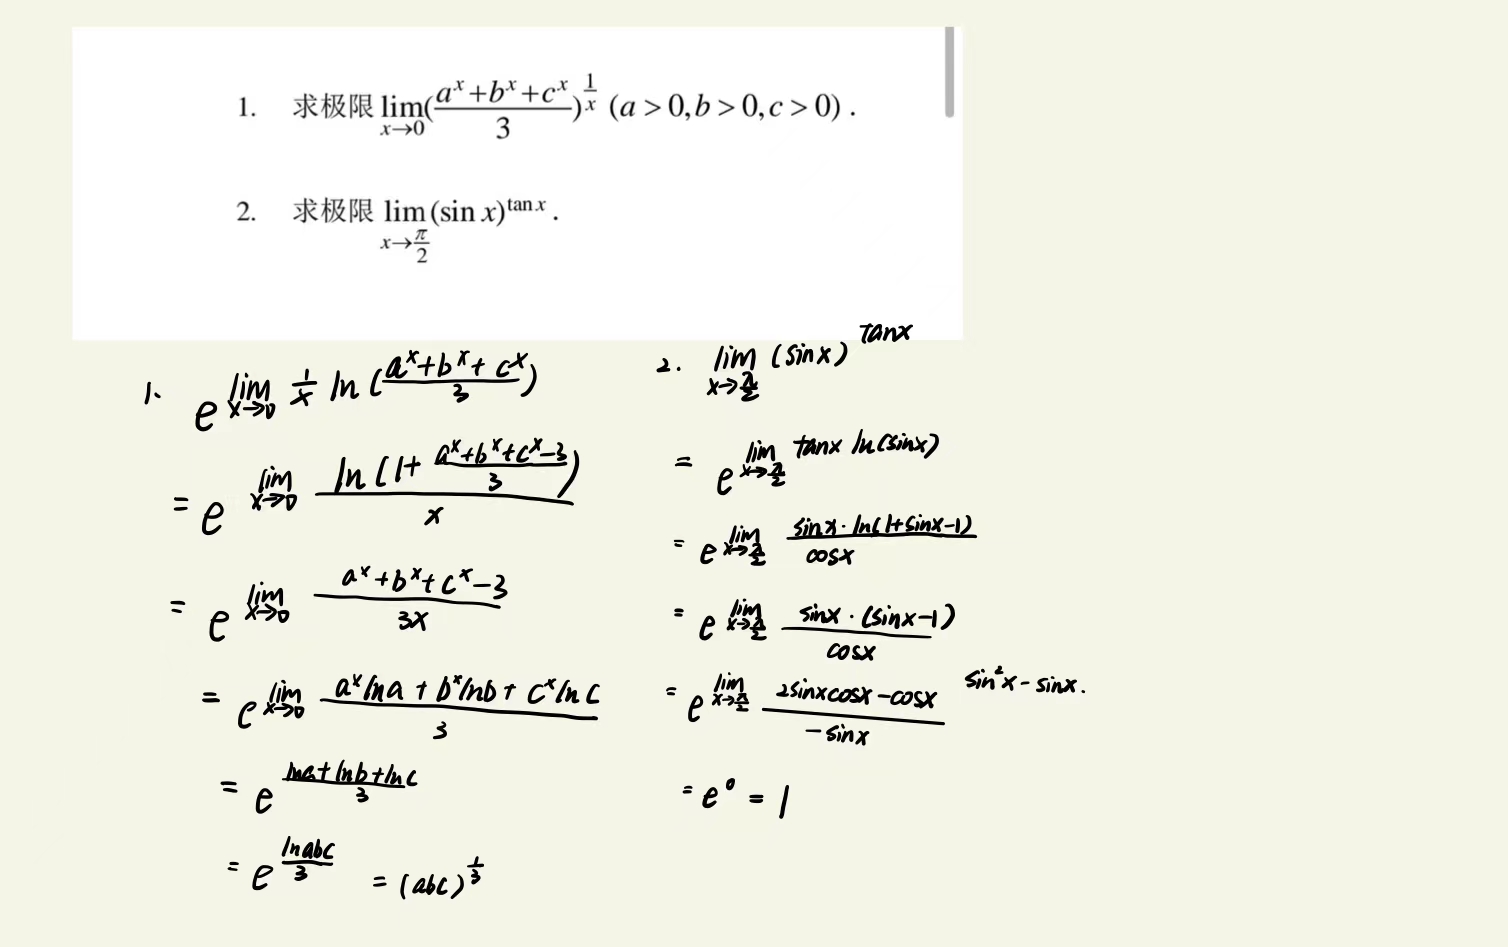 1. 求极限 lim_{x→0} (\frac{a^x+b^x+c^x}{3})^{\frac{1}{x}} (a>0,b>0,c>0).
2. 求极限 lim_{x→\frac{π}{2}} (sin x)^{tan x}.
1、 e^{lim_{x→0} \frac{1}{x} ln(\frac{a^x+b^x+c^x}{3})}
= e^{lim_{x→0} \frac{ln(1+\frac{a^x+b^x+c^x-3}{3})}{x}}
= e^{lim_{x→0} \frac{a^x+b^x+c^x-3}{3x}}
= e^{lim_{x→0} \frac{a^x lna + b^x lnb + c^x lnc}{3}}
= e^{\frac{lna+lnb+lnc}{3}}
= e^{\frac{lnabc}{3}} = (abc)^{\frac{1}{3}}
2. lim_{x→\frac{π}{2}} (sinx)^{tanx}
= e^{lim_{x→\frac{π}{2}} tanx ln(sinx)}
= e^{lim_{x→\frac{π}{2}} \frac{sinx·ln(1+sinx-1)}{cosx}}
= e^{lim_{x→\frac{π}{2}} \frac{sinx·(sinx-1)}{cosx}}
= e^{lim_{x→\frac{π}{2}} \frac{2sinxcosx-cosx}{-sinx}} sin^2x-sinx.
= e^0 = 1